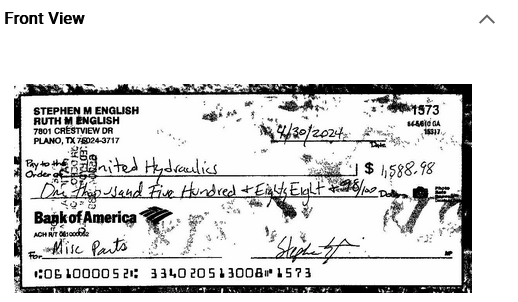 Front View
STEPHEN M ENGLISH
RUTH M ENGLISH
7801 CRESTVIEW DR
PLANO, TX 75024-3717
1573
64-5/610 GA
4/30/2024
Date
Pay to the
Order of United Hydraulics $ 1,588.98
One Thousand Five Hundred + Eighty Eight + 98/100 Dollars
Bank of America
ACH R/T 061000052
For Misc Parts
⑆061000052⑆ 334020513008⑈1573